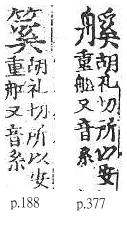 胡礼切所以安
重舩又音系
胡礼切所以安
重舩又音系
p.188 p.377